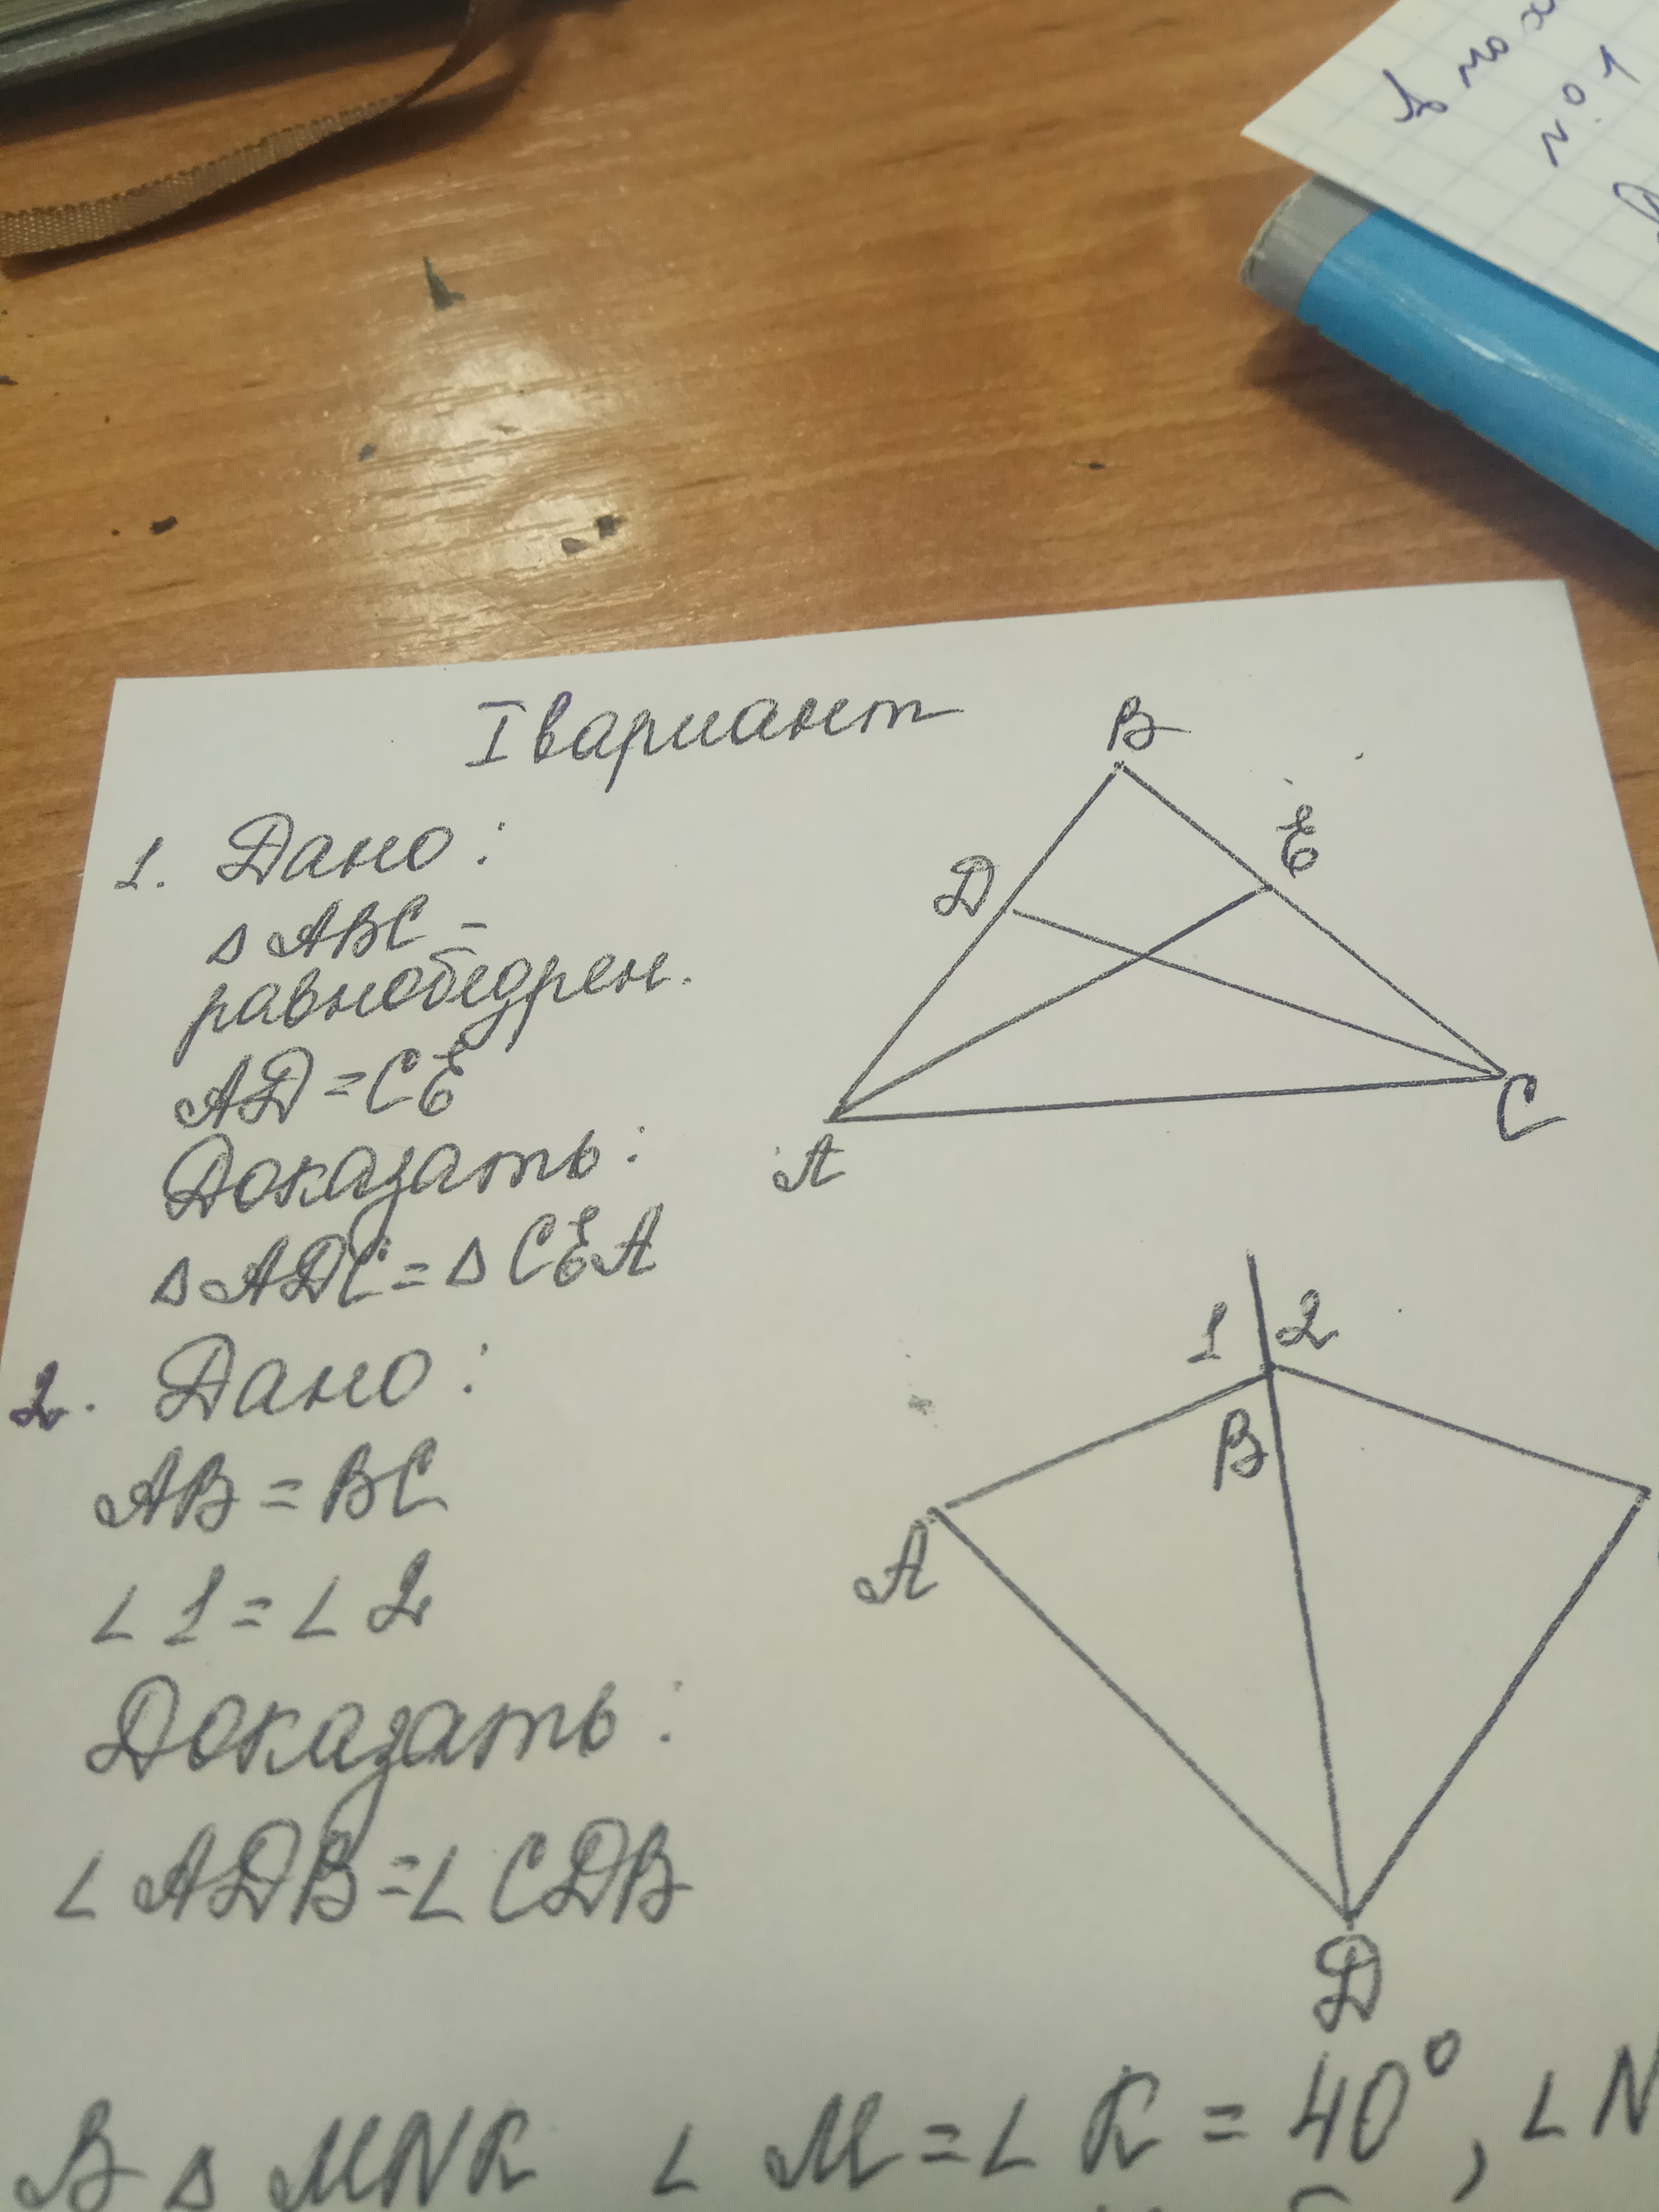 I вариант
1. Дано:
△ ABC -
равнобедрен.
AD = CE
Доказать:
△ ADC = △ CEA
B
E
D
A
C
2. Дано:
AB = BC
∠ 1 = ∠ 2
Доказать:
∠ ADB = ∠ CDB
1 2
B
A
D
В △ MNK ∠ M = ∠ K = 40°, ∠ N
№ 1